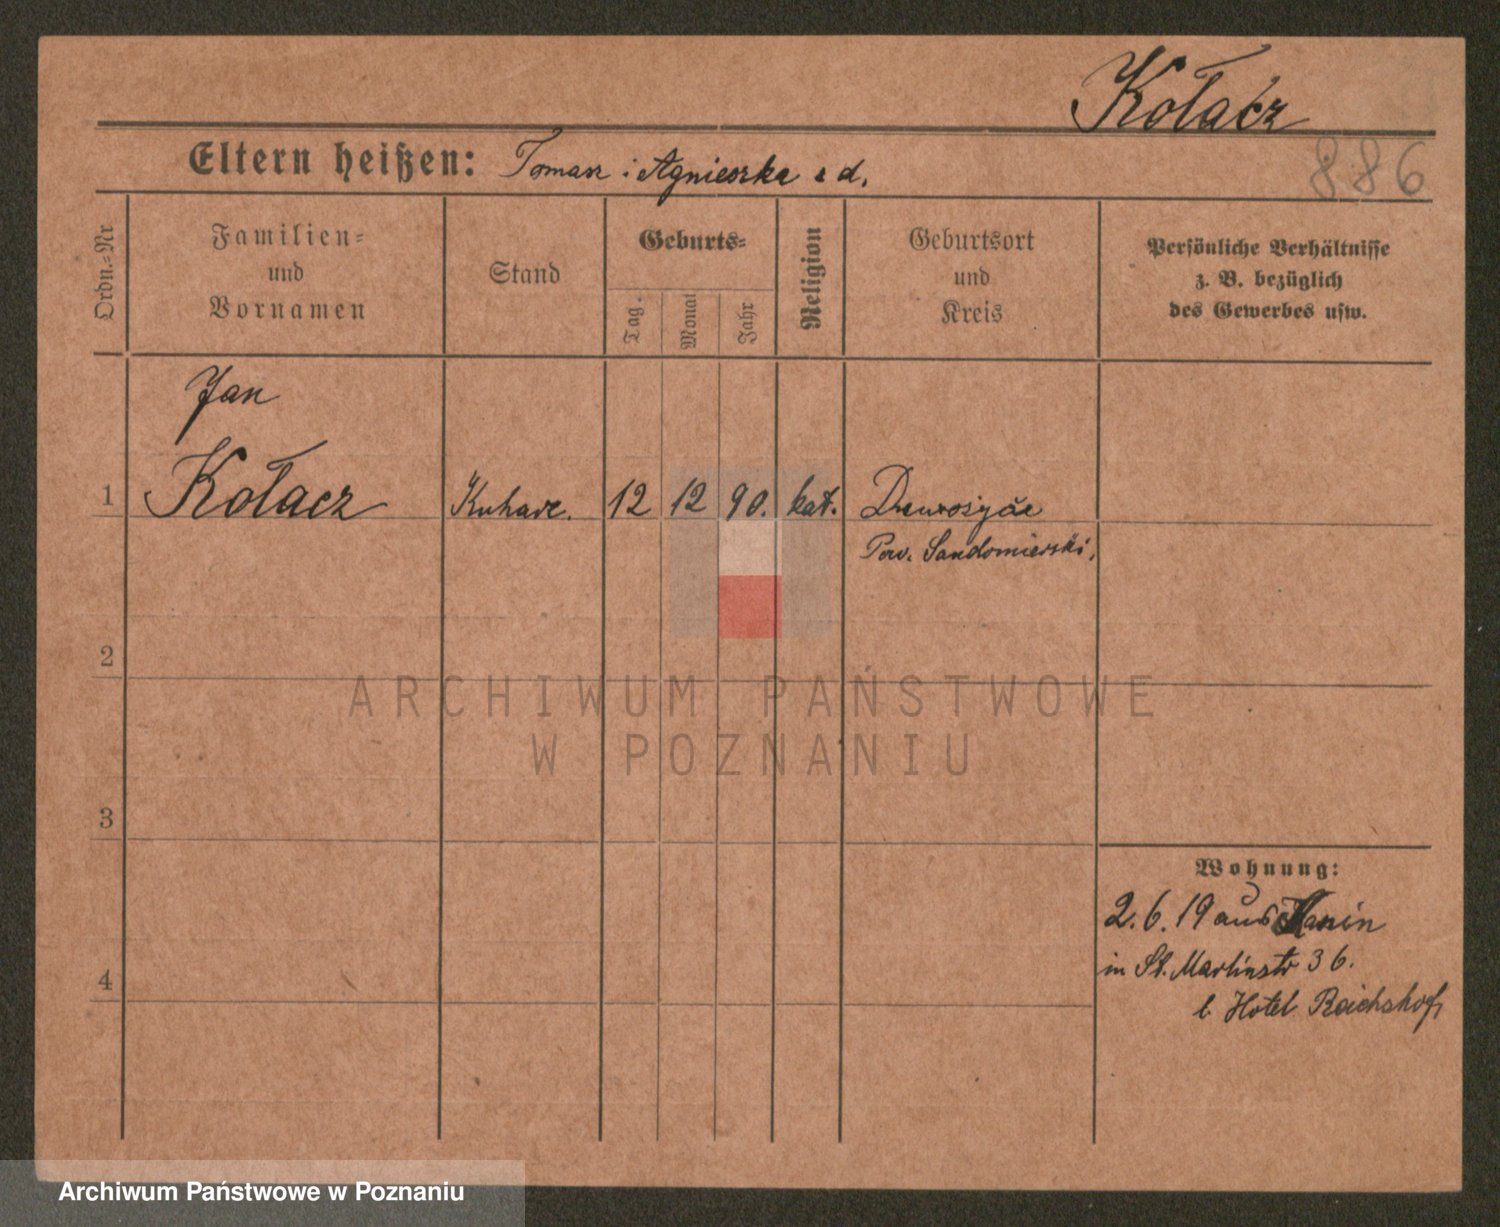 Kołacz
Eltern heißen: Tomasz i Agnieszka s d.
886
Ordn.-Nr
Familien-
und
Vornamen
Stand
Geburts-
Tag.
Monat
Jahr
Religion
Geburtsort
und
Kreis
Persönliche Verhältnisse
z. B. bezüglich
des Gewerbes usw.
Jan
1 Kołacz Kuharz. 12 12 90. kat.
Pow. Sandomierski.
2
3
4
ARCHIWUM PAŃSTWOWE
W POZNANIU
Wohnung:
2. 6. 19 aus
in St. Martinstr 36.
b. Hotel Reichshof,
Archiwum Państwowe w Poznaniu